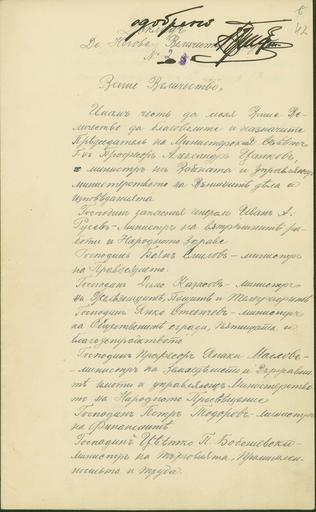 одобрено
Доклад
До Негово Величество
№ 2
42
Ваше Величество,
Имамъ честь да моля Ваше Ве-
личество да благоволите и назначите
Председатель на Министерския Съветъ
Г-нъ Професоръ Александръ Цанковъ,
министъръ на Войната и управляющъ
министерството на Външнитѣ дела и
изповѣданията
Господинъ запасния генералъ Иванъ
Русевъ - Министъръ на вътрешнитѣ ра-
боти и Народното Здраве
Господинъ Боянъ Смиловъ - министъръ
на Правосѫдието.
Господинъ Димо Казасовъ - министъръ
на Железницитѣ, Пощитѣ и Телеграфитѣ
Господинъ Янко Стоенчевъ - министъръ
на Обществените сгради, Пѫтищата и
благоустройството
Господинъ Професоръ Янаки Молловъ -
министъръ на Земледѣлието и Държавни-
тѣ имоти и управляющъ Министерство
то на Народното Просвещение
Господинъ Петръ Тодоровъ - министъръ
на Финанситѣ
Господинъ Цвѣтко П. Бобошевски -
министъръ на Търговията, Промишле-
ностьта и труда.